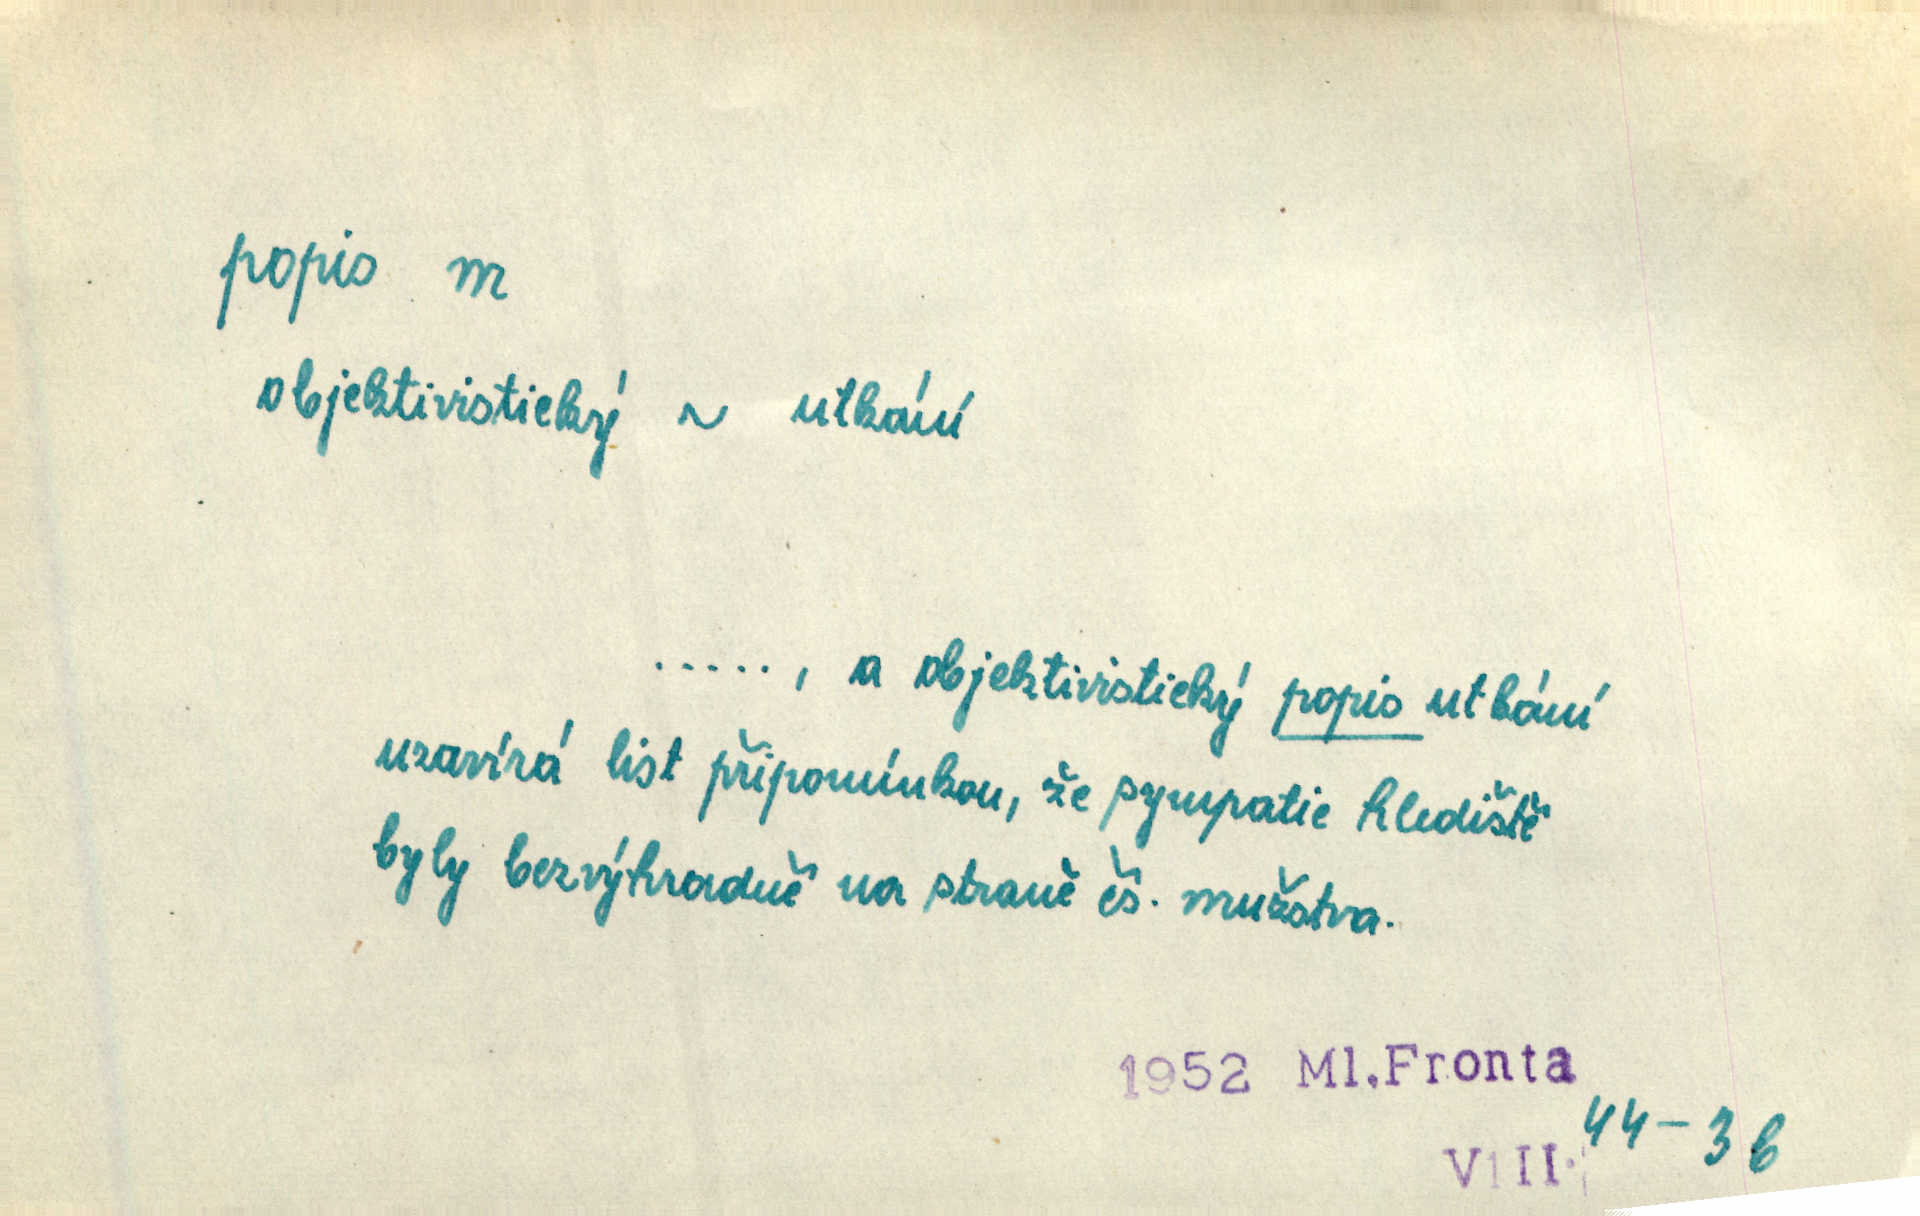 popis m
objektivistický ~ utkání
....., a objektivistický popis utkání
uzavírá list připomínkou, že sympatie hlediště
byly bezvýhradně na straně čs. mužstva.
1952 Ml.Fronta
VIII. 44-3b